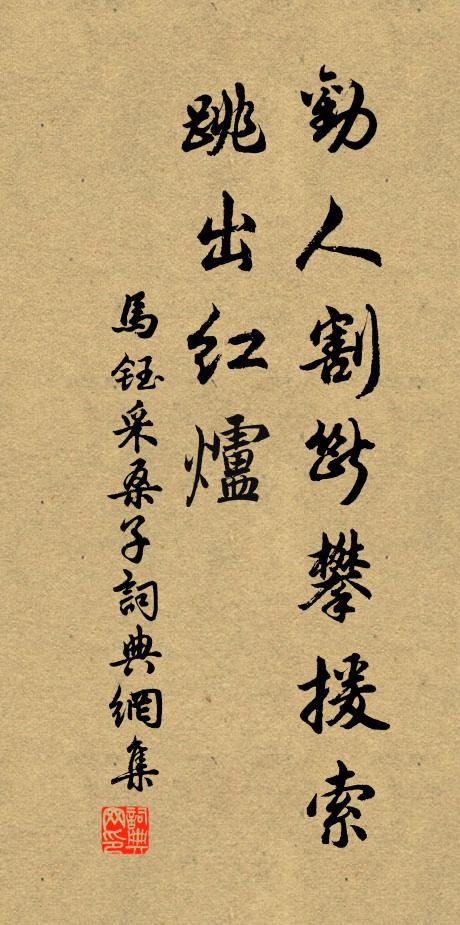 勸人割斷攀援索
跳出紅爐
馬鈺采桑子詞典網集
詞典网印